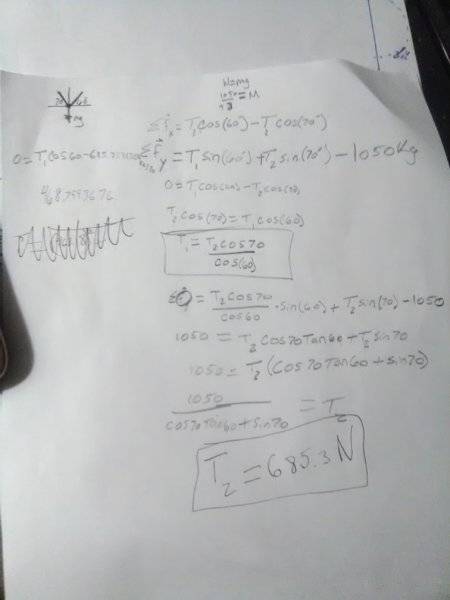 W=mg
1050/9.8 = M
70 60
mg
ΣFx = T₁cos(60°) - T₂cos(70°)
ΣFy = T₁sin(60°) + T₂sin(70°) - 1050kg
0 = T₁cos60
0 = T₁cos(60) - T₂cos(70)
T₂cos(70) = T₁cos(60)
T₁ = T₂cos70/cos(60)
= T₂cos70/cos60 · sin(60) + T₂sin(70) - 1050
1050 = T₂cos70Tan60 + T₂sin70
1050 = T₂(cos70Tan60 + sin70)
1050/cos70Tan60 + sin70 = T₂
T₂ = 685.3N